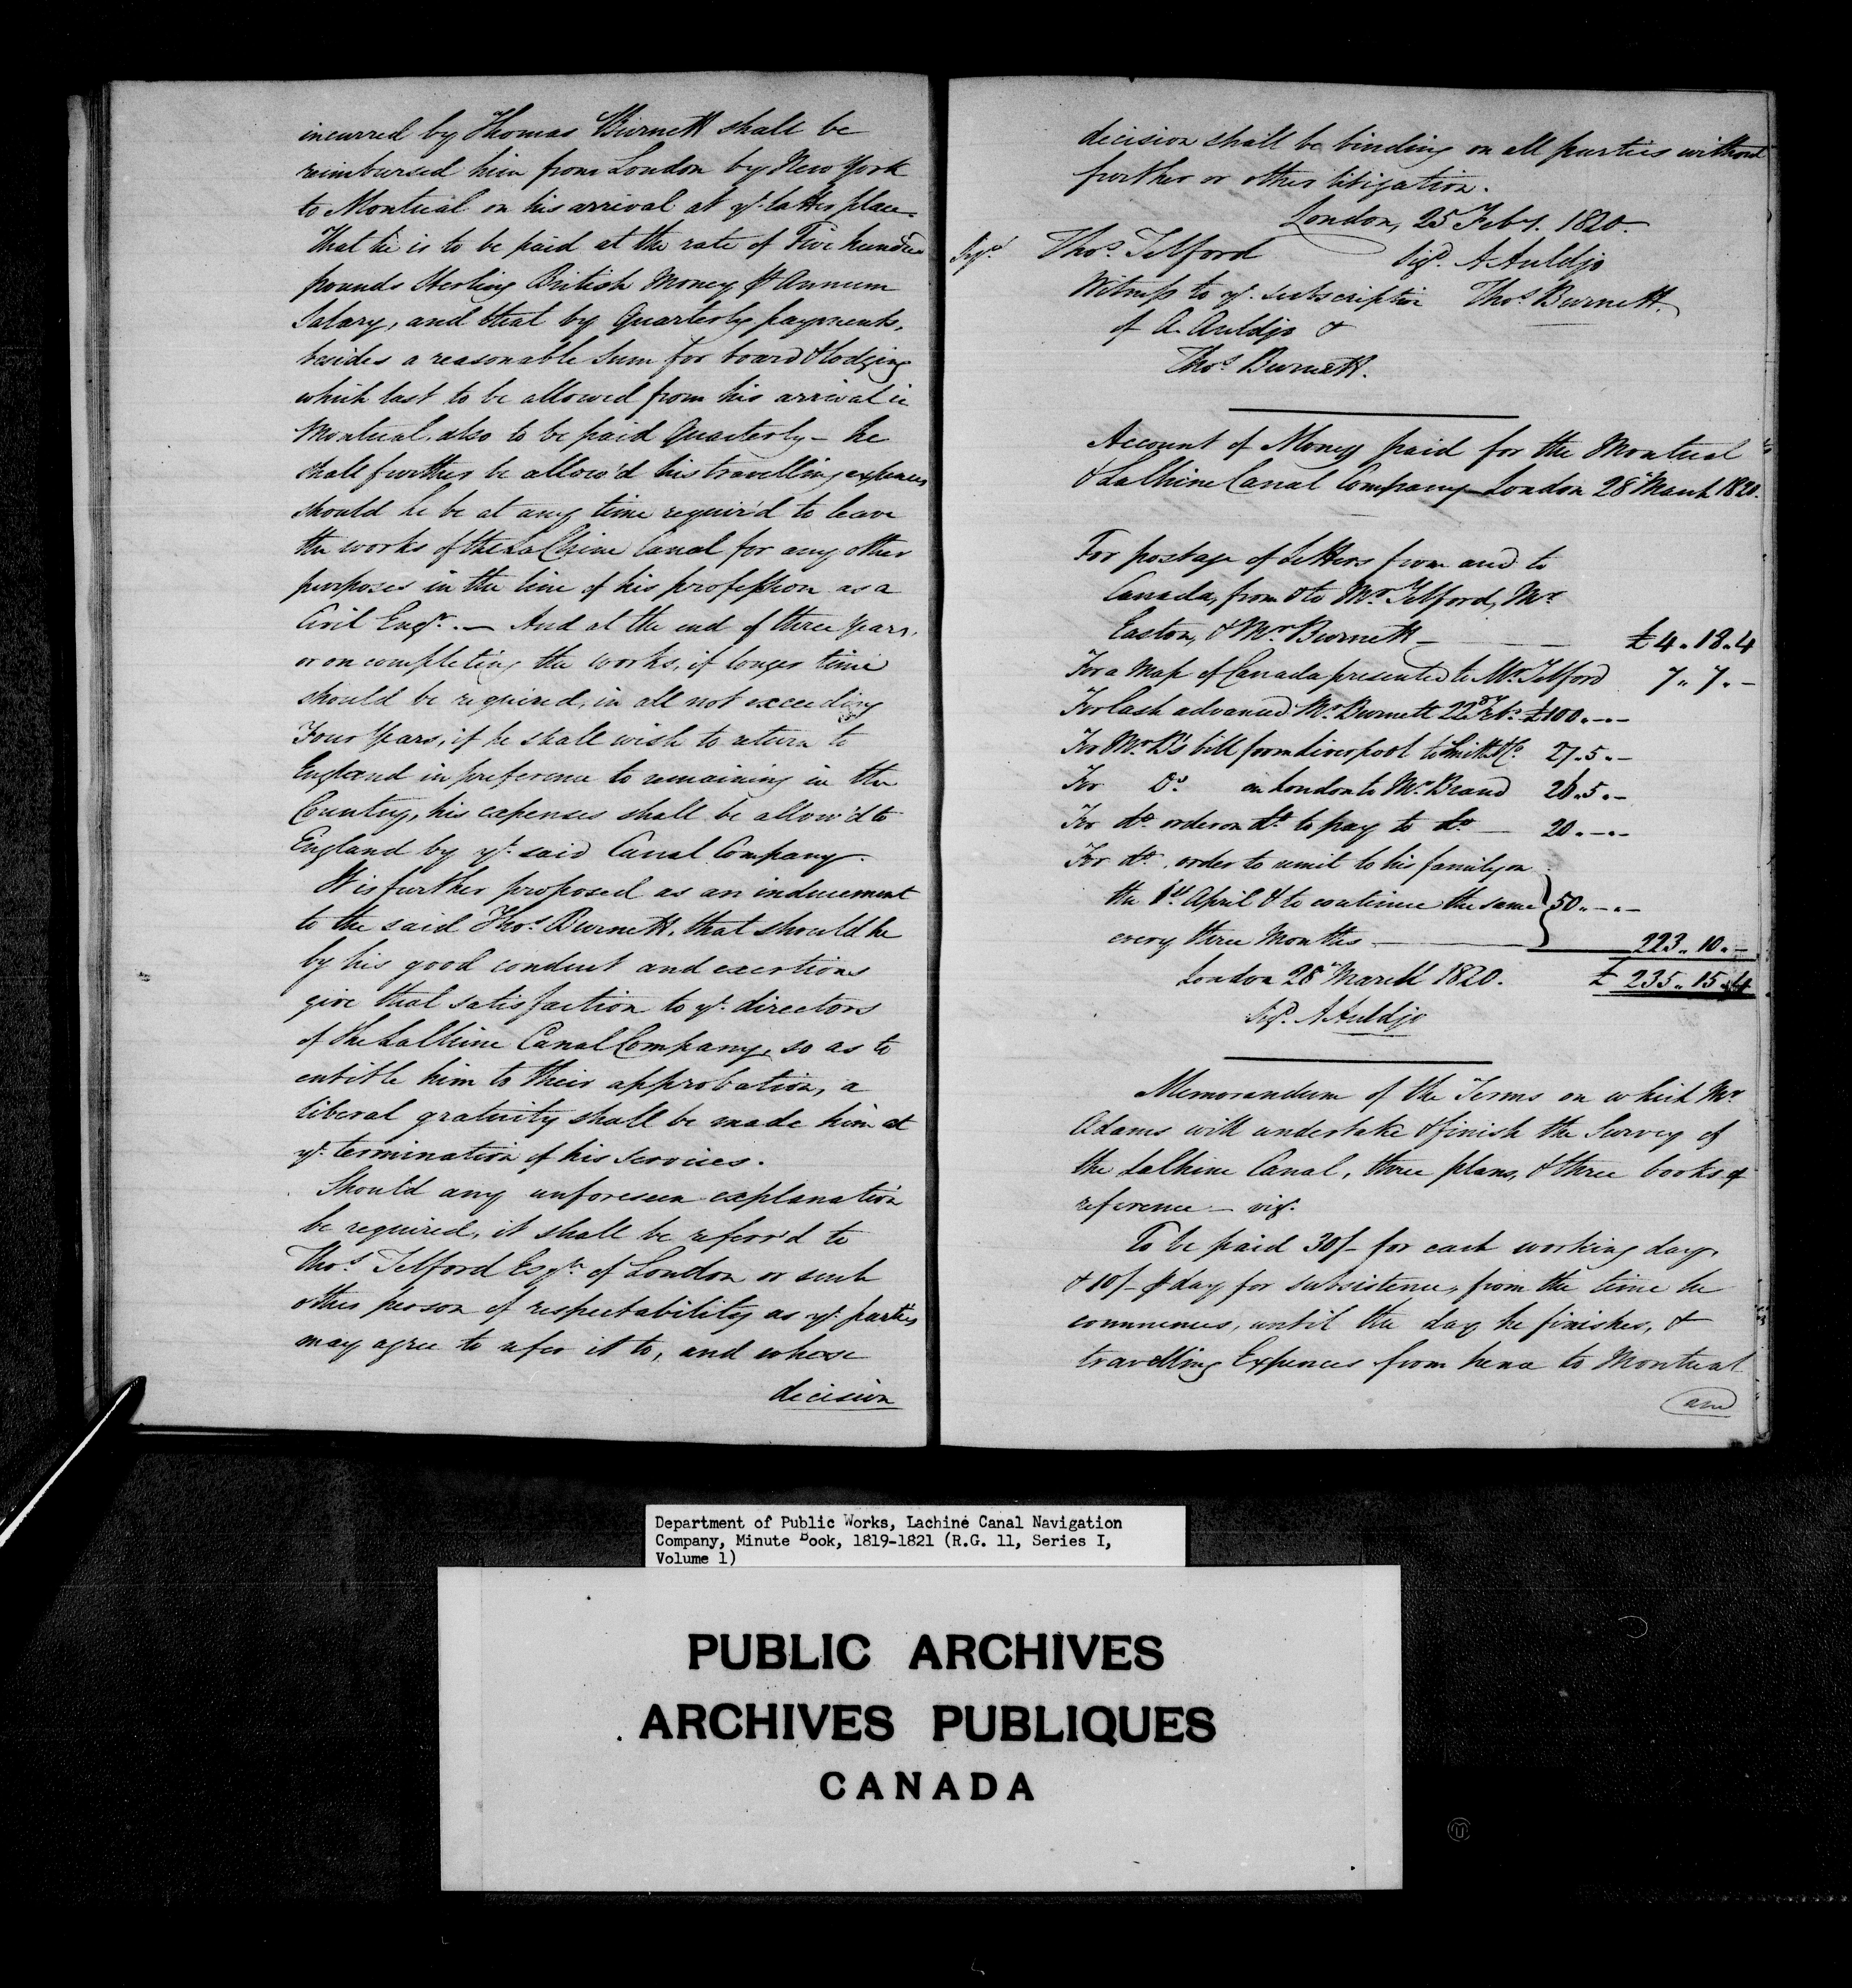 incurred by Thomas Burnett shall be
reimbursed him from London by New York
to Montreal on his arrival at yᵉ latter place.
That he is to be paid at the rate of Five hundred
pounds Sterling British Money ⅌ Annum
Salary, and that by Quarterly payments,
besides a reasonable sum for board & lodging
which last to be allowed from his arrival in
Montreal. also to be paid Quarterly – he
shall further be allow'd his travelling expences
should he be at any time requir'd to leave
the works of the La Chine Canal for any other
purposes in the line of his profession as a
Civil Engʳ. — And at the end of three years,
or on completing the works, if longer time
should be required, in all not exceeding
Four Years, if he shall wish to return to
England in preference to remaining in the
Country, his expenses shall be allow'd to
England by yᵉ said Canal Company.
It is further proposed as an inducement
to the said Thoˢ. Burnett, that should he
by his good conduct and exertions
give that satisfaction to yᵉ directors
of the Lachine Canal Company, so as to
entitle him to their approbation, a
liberal gratuity shall be made him at
yᵉ termination of his services.
Should any unforeseen explanation
be required, it shall be referr'd to
Thoˢ. Telford Esqʳᵉ of London or such
other person of respectability as yᵉ parties
may agree to refer it to, and whose
decision
decision shall be binding on all parties without
further or other litigation.
London, 25 Febʸ. 1820.
Sigᵈ. Thoˢ. Telford Sigᵈ. A Auldjo
Witness to yᵉ subscription Thoˢ Burnett.
of A. Auldjo &
Thoˢ Burnett.
Account of Money paid for the Montreal
& Lachine Canal Company London 28 March 1820.
For postage of Letters from and to
Canada, from & to Mʳ Telford, Mʳ
Easton, & Mʳ Burnett — £4..18..4
For a Map of Canada presented to Mʳ Telford 7..7..–
For Cash advanced Mʳ Burnett 22ᵈ Febʸ £100..–..–
For Mʳ B's bill from Liverpool to Smith & Cº. 27..5..–
For Dº. in London to Mʳ Brand 26..5..–
For dº order on dº to pay to dº — 20..–..–
For dº. order to remit to his family on
the 1ˢᵗ April & to continue the same } 50..–..–
every three Months — 223..10..–
London 28 March 1820. £ 235..15..4
Sigᵈ. A Auldjo
Memorandum of the Terms on which Mʳ
Adams will undertake & finish the Survey of
the Lachine Canal, three plans, & three books of
reference – vizᵗ.
To be paid 30/– for each working day,
& 10/– ⅌ day for subsistence, from the time he
commences, until the day he finishes, &
travelling Expences from hence to Montreal
and
Department of Public Works, Lachine Canal Navigation
Company, Minute Book, 1819-1821 (R.G. 11, Series I,
Volume 1)
PUBLIC ARCHIVES
ARCHIVES PUBLIQUES
CANADA